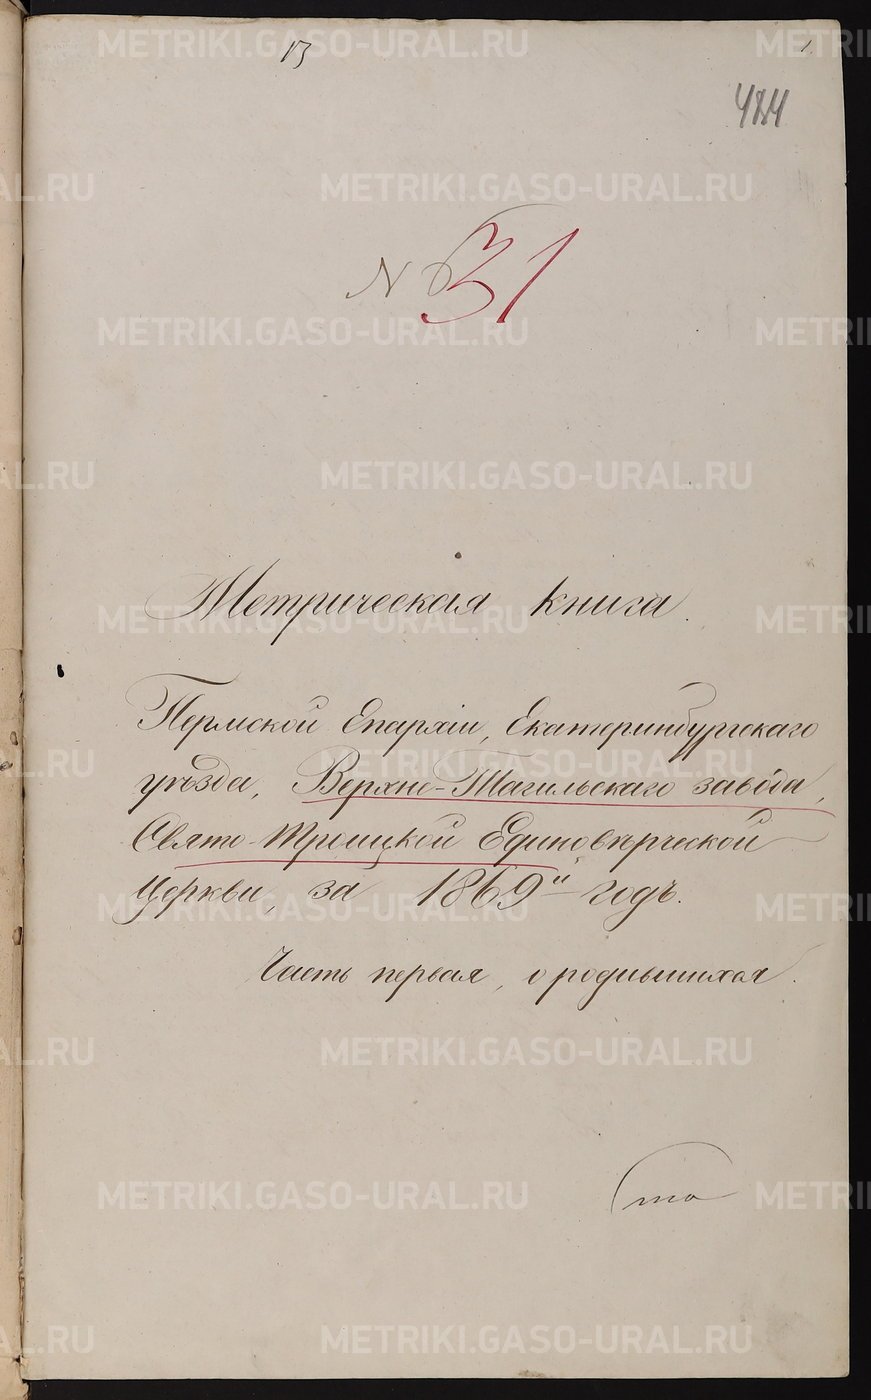 13
1
484
№ 31
Метрическая книга
Пермской Епархіи, Екатеринбургскаго
уѣзда, Верхне-Тагильскаго завода,
Свято-Троицкой Единовѣрческой
Церкви, за 1869й годъ.
Часть первая, о родившихся.
METRIKI.GASO-URAL.RU